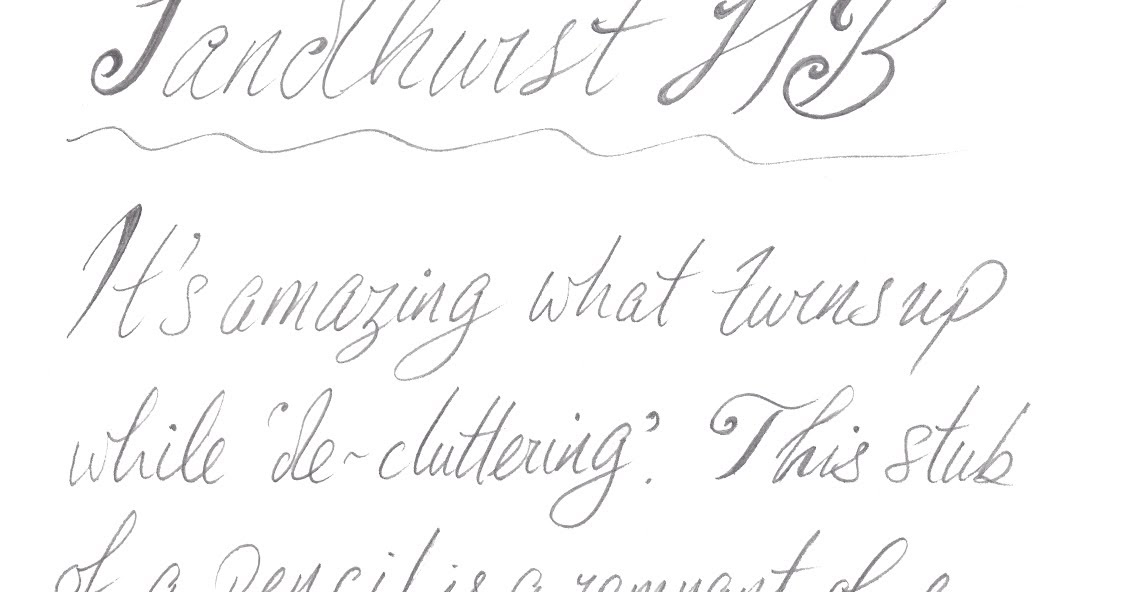 Sandhurst HB
It's amazing what turns up
while 'de-cluttering'. This stub
of a pencil is a remnant of a